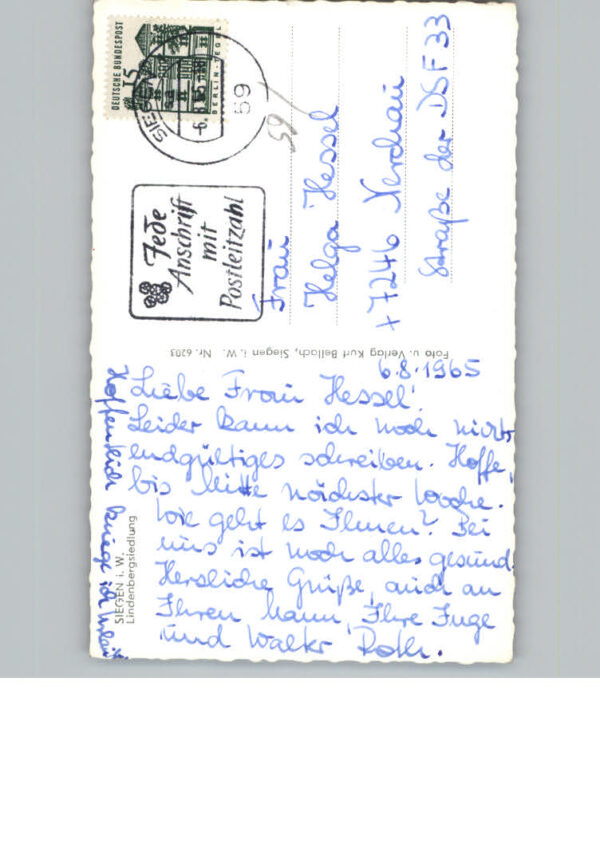 6.8.1965
Liebe Frau Hessel!
Leider kann ich noch nichts
endgültiges schreiben. Hoffe,
bis Mitte nächster Woche.
Wie geht es Ihnen? Bei
uns ist noch alles gesund.
Herzliche Grüße, auch an
Ihren Mann, Ihre Inge
und Walter Roth.
Hoffentlich kriege ich Urlaub
SIEGEN i. W.
Lindenbergsiedlung
Foto u. Verlag Kurt Bellach, Siegen i. W. Nr. 6203
DEUTSCHE BUNDESPOST
15
BERLIN-TEGEL
SIEGEN
59
59
Jede
Anschrift
mit
Postleitzahl
Frau
Helga Hessel
x 7246 Nerchau
Straße der DSF 33